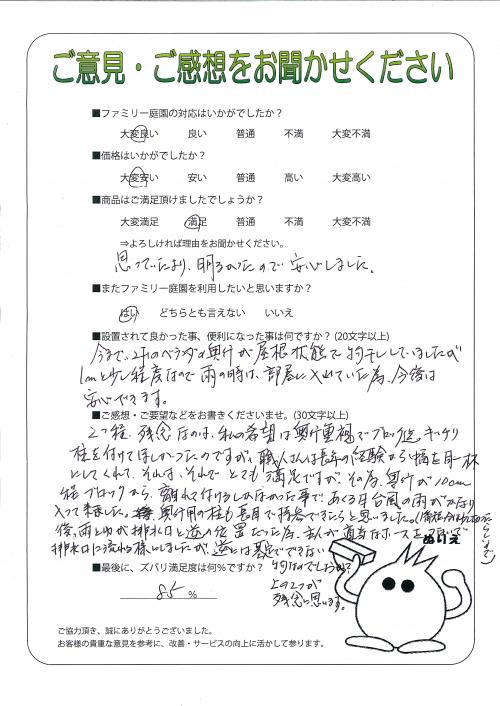 ご意見・ご感想をお聞かせください
■ファミリー庭園の対応はいかがでしたか？
大変良い 良い 普通 不満 大変不満
■価格はいかがでしたか？
大変安い 安い 普通 高い 大変高い
■商品はご満足頂けましたでしょうか？
大変満足 満足 普通 不満 大変不満
⇒よろしければ理由をお聞かせください。
思っていたより、明るかったので安心しました。
■またファミリー庭園を利用したいと思いますか？
はい どちらとも言えない いいえ
■設置されて良かった事、便利になった事は何ですか？(20文字以上)
今まで、2Fのベランダの奥行が屋根状態で物干ししていましたが
1mと少し程度なので雨の時は、部屋に入れていた為、今後は
安心できます。
■ご感想・ご要望などをお書きくださいませ。(30文字以上)
2つ程、残念なのは、私の希望は奥行重視でブロック迄、キッチリ
柱を付けてほしかったのですが、職人さんは長年の経験から幅を目一杯
にしてくれて、それは、それでとても満足ですが、その為、奥行が10cm
程ブロックから、離れて付けるしかなかった事で、あくる日台風の雨がかなり
入って来ました。奥行用の柱も長目で持参できたらと思いました。
後、雨どいが排水口と逆の位置だった為、主人が適当なホースを
排水口に流れる様にしましたが、逆には
物なのでしょうか？
上の2つが
残念に思います。
■最後に、ズバリ満足度は何％ですか？
85 ％
ご協力頂き、誠にありがとうございました。
お客様の貴重な意見を参考に、改善・サービスの向上に活かして参ります。